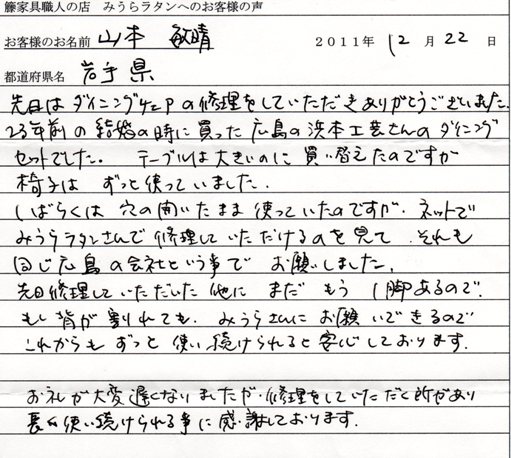 籐家具職人の店　みうらラタンへのお客様の声
お客様のお名前 山本 敏晴 2011年 12月 22日
都道府県名 岩手県
先日はダイニングチェアの修理をしていただきありがとうございました。
23年前の結婚の時に買った広島の浜本工芸さんのダイニング
セットでした。 テーブルは大きいのに買い替えたのですが
椅子は ずっと使っていました。
しばらくは 穴の開いたまま使っていたのですが、ネットで
みうらラタンさんで修理していただけるのを見て それも
同じ広島の会社という事で お願いしました。
先日修理していただいた他に まだ もう 1脚あるので、
もし 背が割れても、みうらさんにお願いできるので
これからも ずっと 使い続けられると安心しております。
お礼が大変遅くなりましたが、修理をしていただく所があり
長く使い続けられる事に感謝しております。